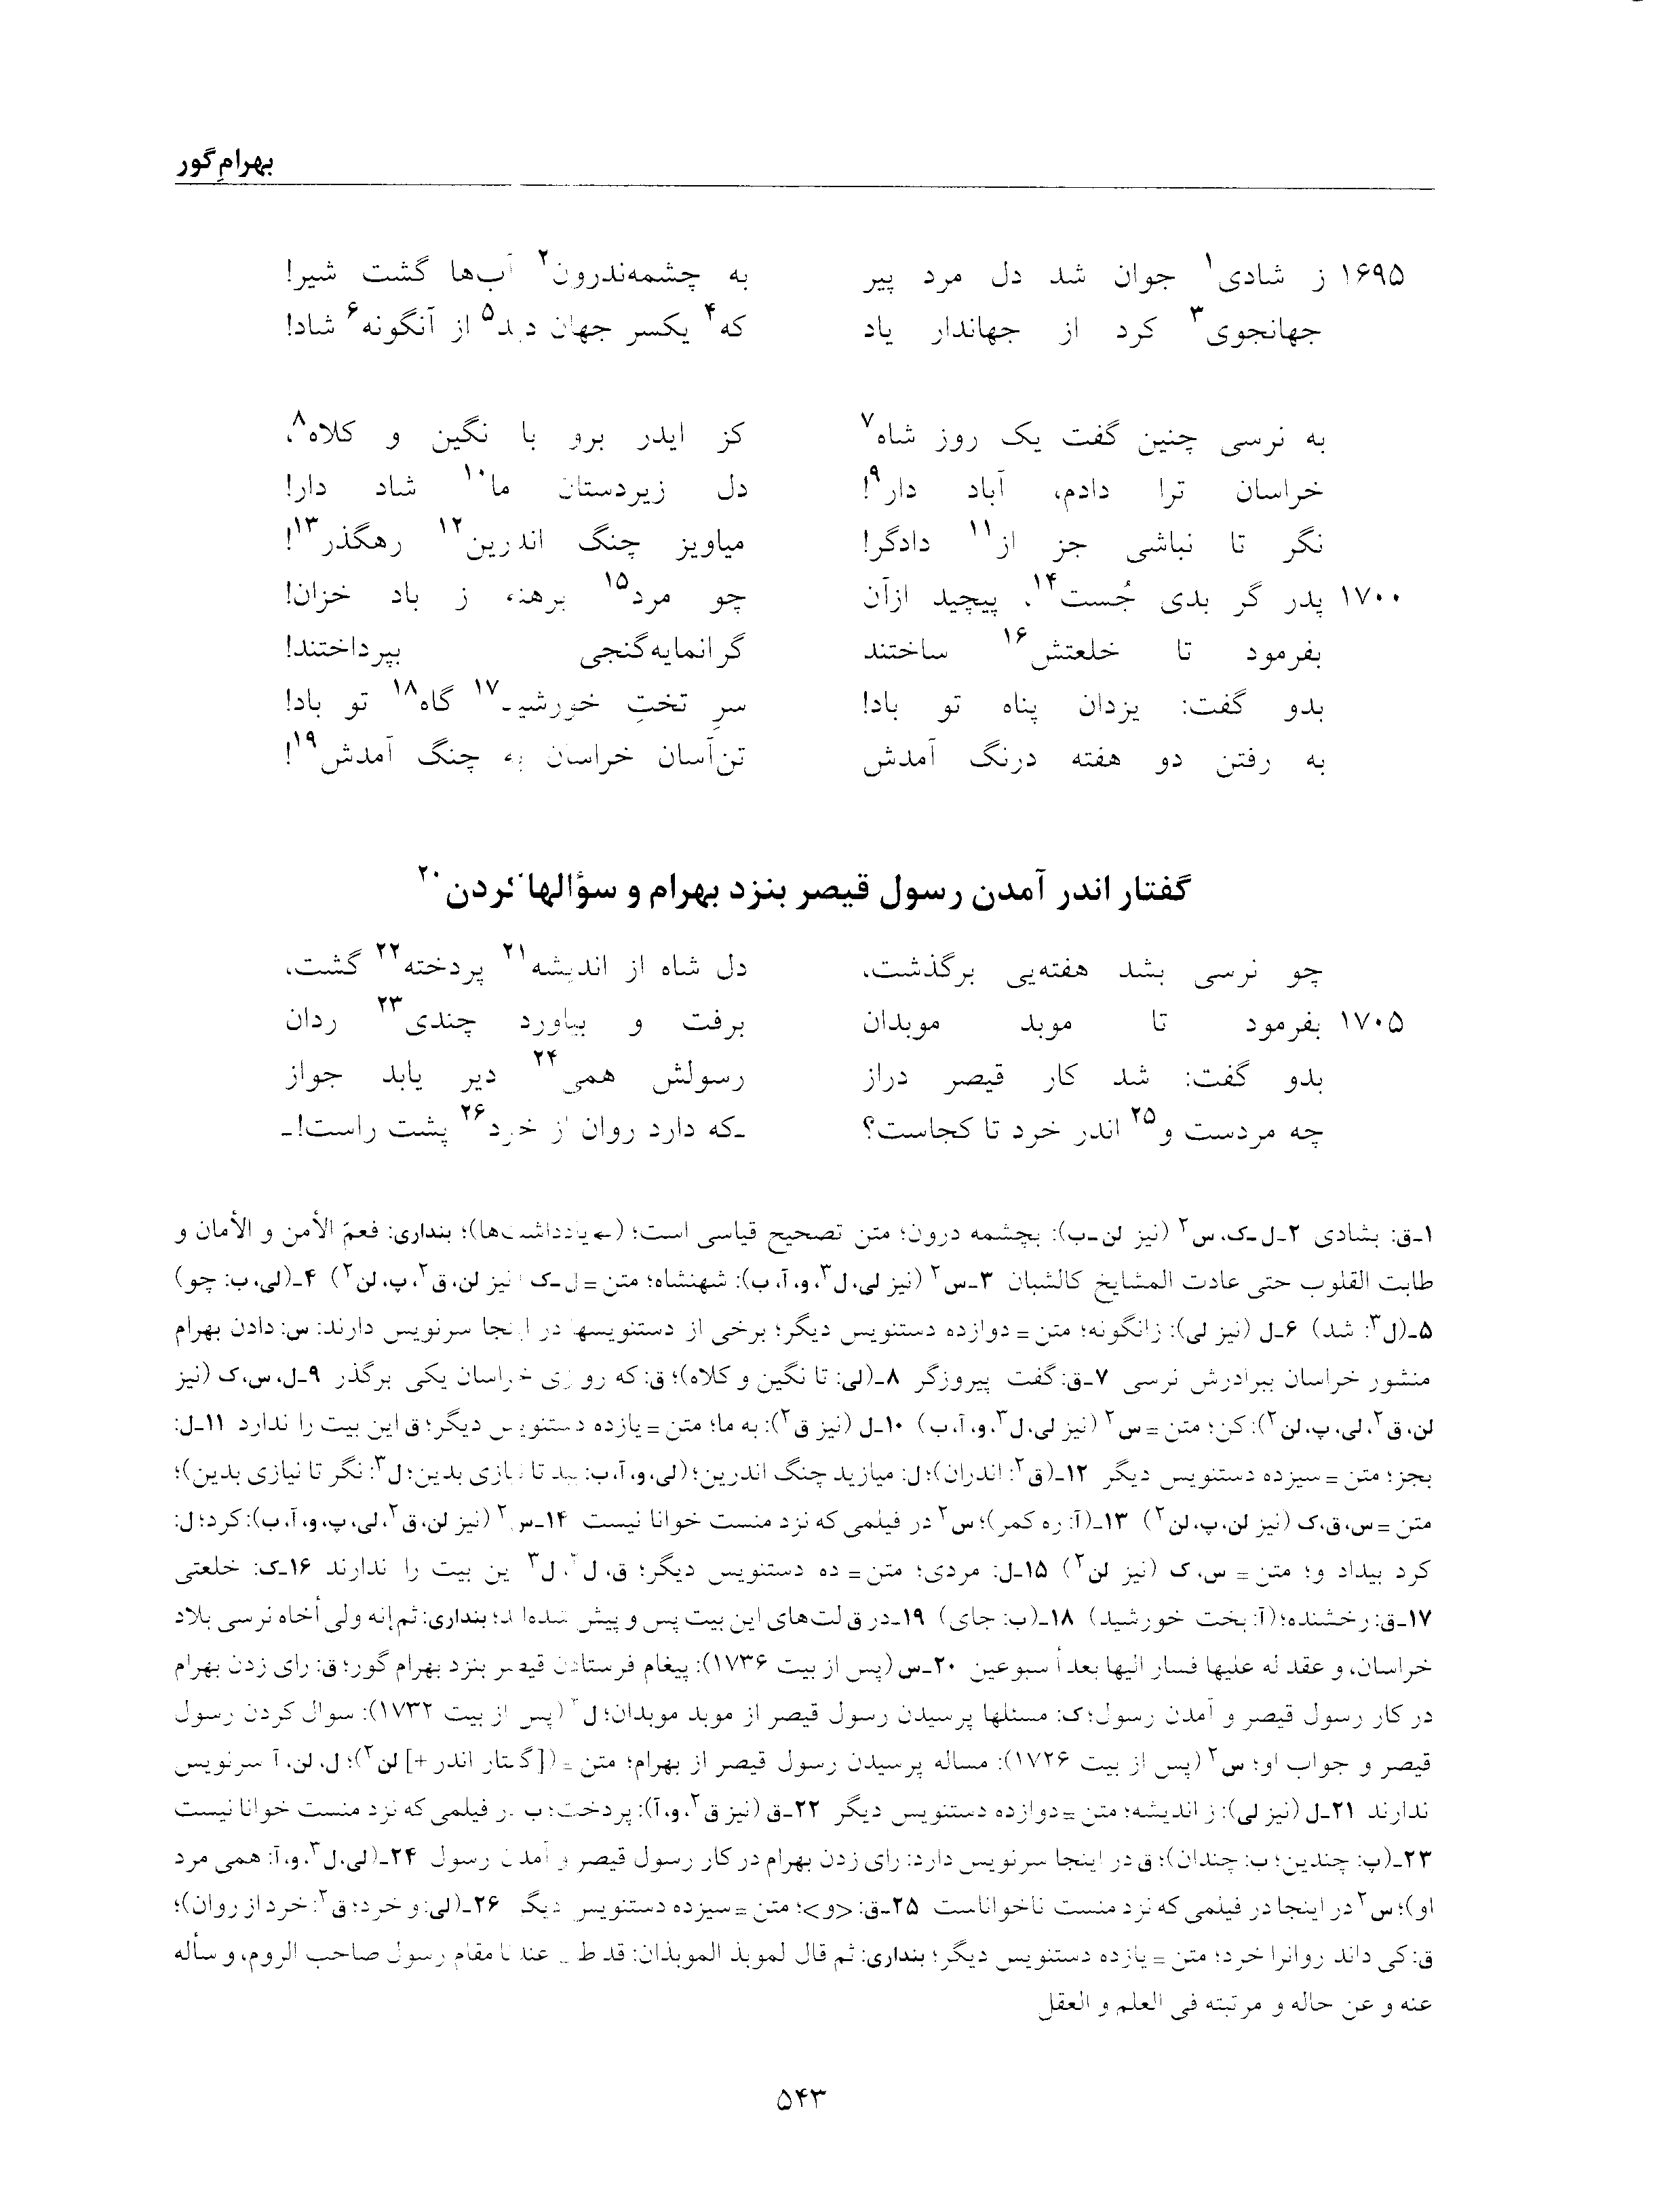 بهرامِ گور
۱۶۹۵ ز شادی۱ جوان شد دل مرد پیر به چشمه‌ندرون۲ آب‌ها گشت شیر!
جهانجوی۳ کرد از جهاندار یاد که۴ یکسر جهان دید۵ از آنگونه۶ شاد!
به نرسی چنین گفت یک روز شاه۷ کز ایدر برو با نگین و کلاه۸،
خراسان ترا دادم، آباد دار۹! دل زیردستان ما۱۰ شاد دار!
نگر تا نباشی جز از۱۱ دادگر! میاویز چنگ اندرین۱۲ رهگذر۱۳!
۱۷۰۰ پدر گر بدی جُست۱۴، پیچید ازآن چو مرد۱۵ برهنه ز باد خزان!
بفرمود تا خلعتش۱۶ ساختند گرانمایه‌گنجی بپرداختند!
بدو گفت: یزدان پناه تو باد! سرِ تختِ خورشید۱۷ گاه۱۸ تو باد!
به رفتن دو هفته درنگ آمدش تن‌آسان خراسان به چنگ آمدش۱۹!
گفتار اندر آمدن رسول قیصر بنزد بهرام و سؤالها کردن۲۰
چو نرسی بشد هفته‌یی برگذشت، دل شاه از اندیشه۲۱ پردخته۲۲ گشت،
۱۷۰۵ بفرمود تا موبد موبدان برفت و بیاورد چندی۲۳ ردان
بدو گفت: شد کار قیصر دراز رسولش همی۲۴ دیر یابد جواز
چه مردست و۲۵ اندر خرد تا کجاست؟ ـ که دارد روان از خرد۲۶ پشت راست! ـ
۱ـ ق: بشادی ۲ـ ل ـ ک، س۲ (نیز لن ـ ب): بچشمه درون؛ متن تصحیح قیاسی است؛ (← یادداشت‌ها)؛ بنداری: فعمّ الأمن و الأمان و
طابت القلوب حتی عادت المشایخ کالشبان ۳ـ س۲ (نیز لی، ل۳، و، آ، ب): شهنشاه؛ متن = ل ـ ک (نیز لن، ق۲، پ، لن۲) ۴ـ (لی، ب: چو)
۵ـ (ل۳: شد) ۶ـ ل (نیز لی): زانگونه؛ متن = دوازده دستنویس دیگر؛ برخی از دستنویسها در اینجا سرنویس دارند: س: دادن بهرام
منشور خراسان ببرادرش نرسی ۷ـ ق: گفت پیروزگر ۸ـ (لی: تا نگین و کلاه)؛ ق: که روزی خراسان یکی برگذر ۹ـ ل، س، ک (نیز
لن، ق۲، لی، پ، لن۲): کن؛ متن = س۲ (نیز لی، ل۳، و، آ، ب) ۱۰ـ ل (نیز ق۲): به ما؛ متن = یازده دستنویس دیگر؛ ق این بیت را ندارد ۱۱ـ ل:
بجز؛ متن = سیزده دستنویس دیگر ۱۲ـ (ق۲: اندران)؛ ل: میازید چنگ اندرین؛ (لی، و، آ، ب: تا نیازی بدین؛ ل۳: نگر تا نیازی بدین)؛
متن = س، ق، ک (نیز لن، پ، لن۲) ۱۳ـ (آ: ره کمر)؛ س۲ در فیلمی که نزد منست خوانا نیست ۱۴ـ س۲ (نیز لن، ق۲، لی، پ، و، آ، ب): کرد؛ ل:
کرد بیداد و؛ متن = س، ک (نیز لن۲) ۱۵ـ ل: مردی؛ متن = ده دستنویس دیگر؛ ق، ل۲، ل۳ این بیت را ندارند ۱۶ـ ک: خلعتی
۱۷ـ ق: رخشنده؛ (آ: بخت خورشید) ۱۸ـ (ب: جای) ۱۹ـ در ق لت‌های این بیت پس و پیش شده‌اند؛ بنداری: ثم إنه ولی أخاه نرسی بلاد
خراسان، و عقد له علیها فسار الیها بعد أسبوعین ۲۰ـ س (پس از بیت ۱۷۳۶): پیغام فرستادن قیصر بنزد بهرام گور؛ ق: رای زدن بهرام
در کار رسول قیصر و آمدن رسول؛ ک: مسئلها پرسیدن رسول قیصر از موبد موبدان؛ ل۳ (پس از بیت ۱۷۳۲): سوال کردن رسول
قیصر و جواب او؛ س۲ (پس از بیت ۱۷۲۶): مساله پرسیدن رسول قیصر از بهرام؛ متن = ([گفتار اندر +] لن۲)؛ ل، لن، آ سرنویس
ندارند ۲۱ـ ل (نیز لی): ز اندیشه؛ متن = دوازده دستنویس دیگر ۲۲ـ ق (نیز ق۲، و، آ): پردخت؛ ب در فیلمی که نزد منست خوانا نیست
۲۳ـ (پ: چندین؛ ب: چندان)؛ ق در اینجا سرنویس دارد: رای زدن بهرام در کار رسول قیصر و آمدن رسول ۲۴ـ (لی، ل۳، و، آ: همی مرد
او)؛ س۲ در اینجا در فیلمی که نزد منست ناخواناست ۲۵ـ ق: <و>؛ متن = سیزده دستنویس دیگر ۲۶ـ (لی: و خرد؛ ق۲: خرد از روان)؛
ق: کی داند روانرا خرد؛ متن = یازده دستنویس دیگر؛ بنداری: ثم قال لموبذ الموبذان: قد طال عندنا مقام رسول صاحب الروم، و سأله
عنه و عن حاله و مرتبته فی العلم و العقل
۵۴۳